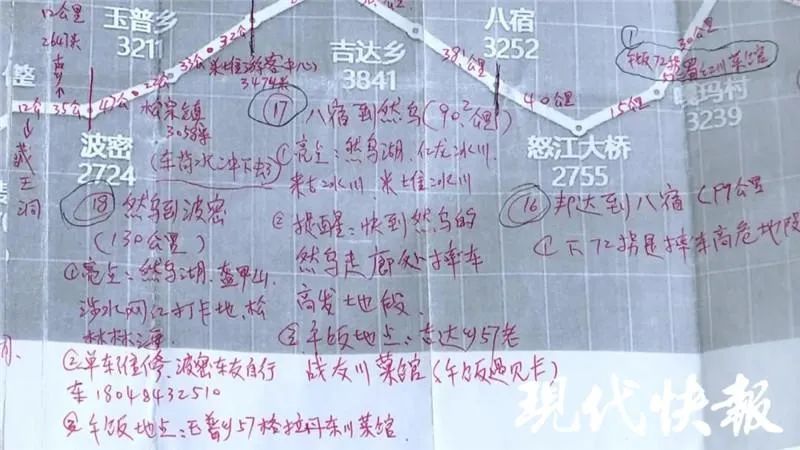 12公里
2641米
玉普乡
3211
八宿
3252
①
30公里
午饭72拐
川菜馆
吉达乡
3841
22公
33公
32公
米堆游客中心
3474米
38公里
40公里
15公里
玛村
3239
12公
35公
松宗镇
波密
2724
怒江大桥
2755
藏王洞
⑰ 八宿到然乌(90.2公里)
①亮点:然乌湖、仁龙冰川
来古冰川 米堆冰川
②提醒:快到然乌的
然乌走廊处摔车
高发地段
③午饭地点:吉达乡57老
战友川菜馆(午饭遇见卡)
⑯ 邦达到八宿
①下72拐是摔车高危地段
⑱ 然乌到波密
(130公里)
①亮点:然乌湖、盔甲山
涉水网红打卡地、松
林林海
②单车维修、波密车友自行
车18048432510
③午饭地点:玉普乡57格拉丹东川菜馆
现代快报